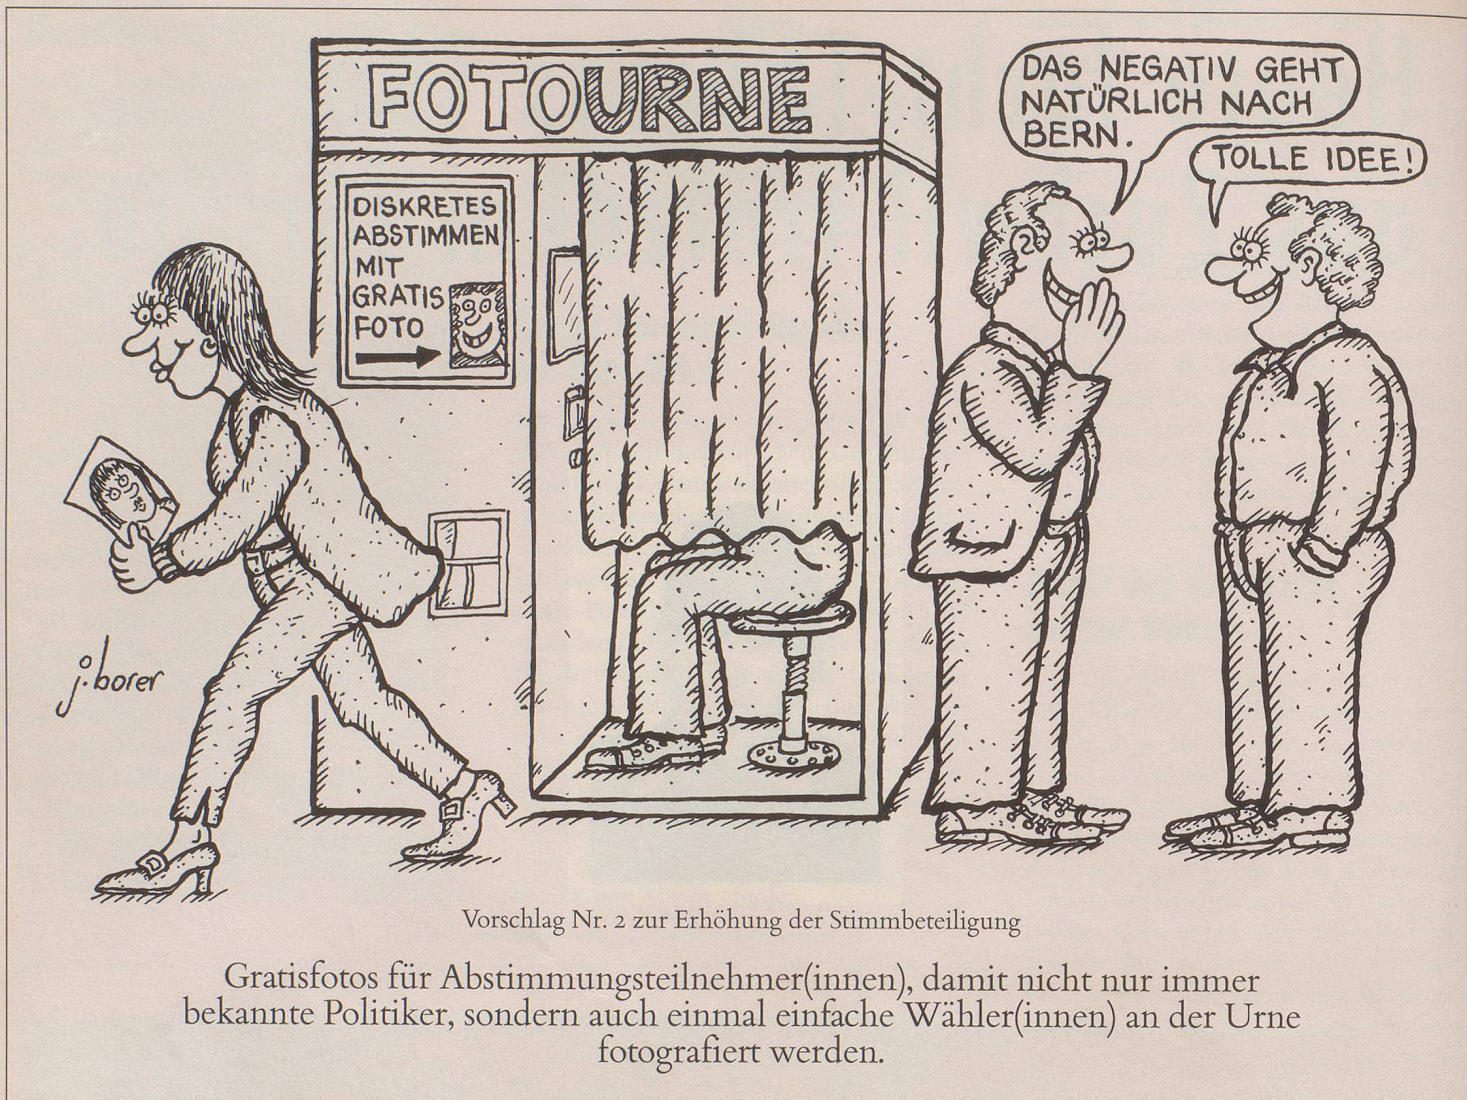 FOTOURNE
DISKRETES
ABSTIMMEN
MIT
GRATIS
FOTO
DAS NEGATIV GEHT
NATÜRLICH NACH
BERN.
TOLLE IDEE!
j. borer
Vorschlag Nr. 2 zur Erhöhung der Stimmbeteiligung
Gratisfotos für Abstimmungsteilnehmer(innen), damit nicht nur immer
bekannte Politiker, sondern auch einmal einfache Wähler(innen) an der Urne
fotografiert werden.